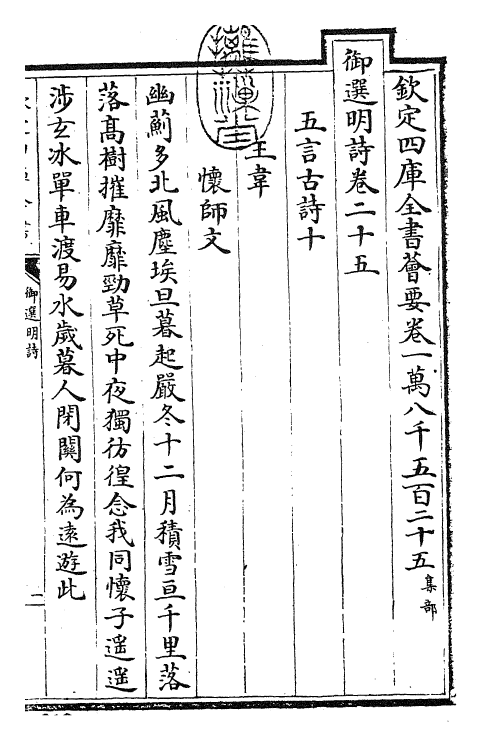 欽定四庫全書薈要卷一萬八千五百二十五 集部
御選明詩卷二十五
五言古詩十
王韋
懷師文
幽薊多北風塵埃旦暮起嚴冬十二月積雪亘千里落
落髙樹摧靡靡勁草死中夜獨彷徨念我同懷子遥遥
涉玄冰單車渡易水歲暮人閉闗何為逺遊此
御選明詩